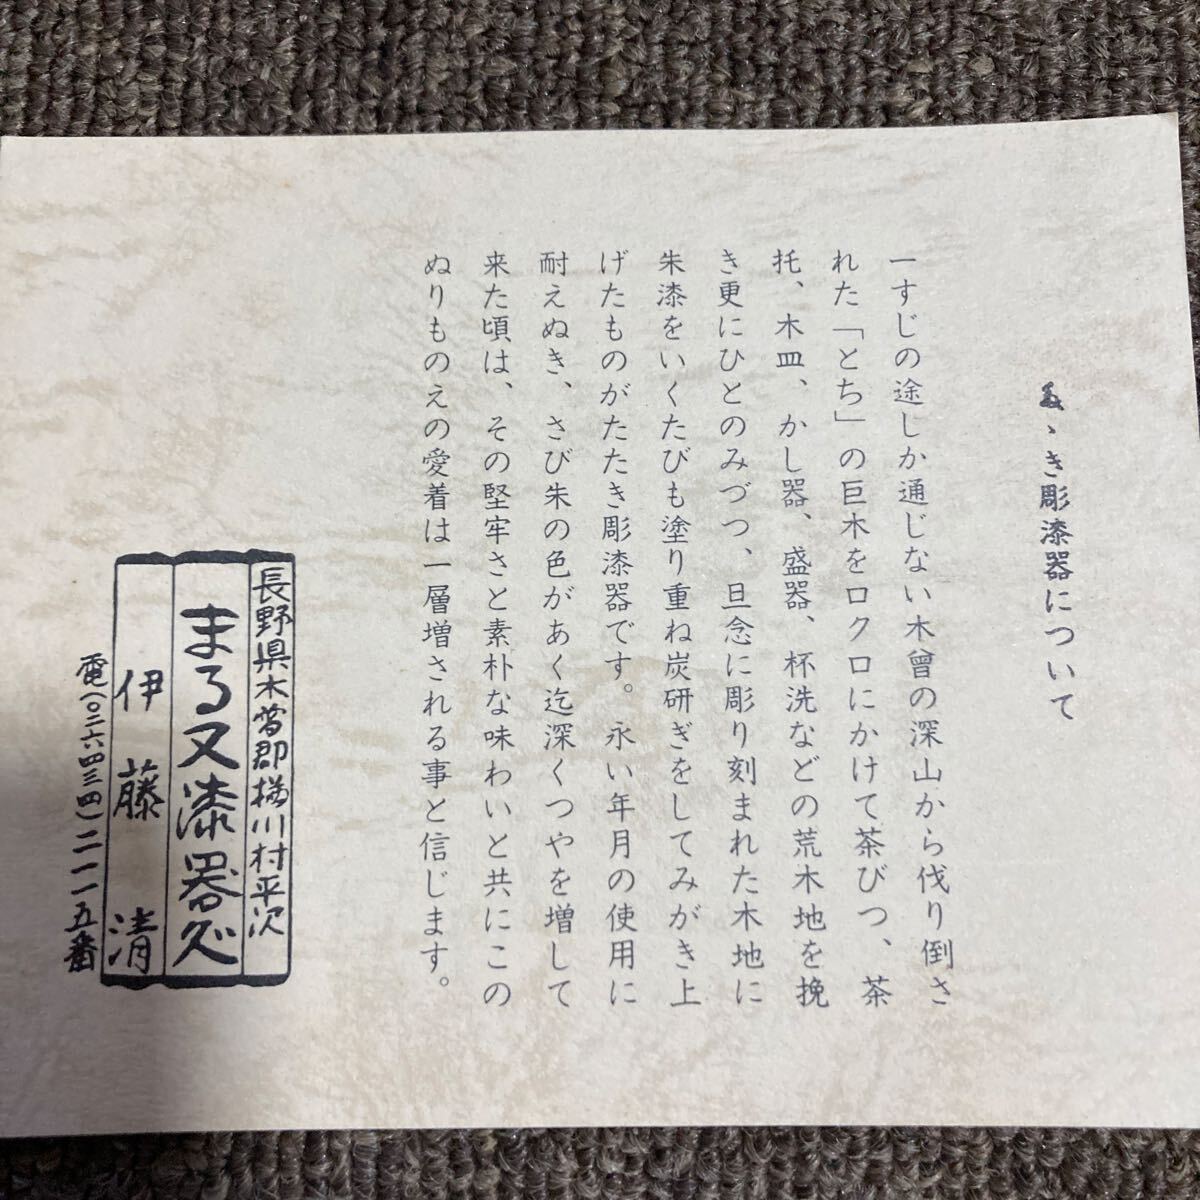 たゝき彫漆器について
一すじの途しか通じない木曾の深山から伐り倒さ
れた「とち」の巨木をロクロにかけて茶びつ、茶
托、木皿、かし器、盛器、杯洗などの荒木地を挽
き更にひとのみづつ、旦念に彫り刻まれた木地に
朱漆をいくたびも塗り重ね炭研ぎをしてみがき上
げたものがたたき彫漆器です。永い年月の使用に
耐えぬき、さび朱の色があく迄深くつやを増して
来た頃は、その堅牢さと素朴な味わいと共にこの
ぬりものえの愛着は一層増される事と信じます。
長野県木曽郡楢川村平沢
まる又漆器店
伊藤清
電(〇二六四三四)二一一五番